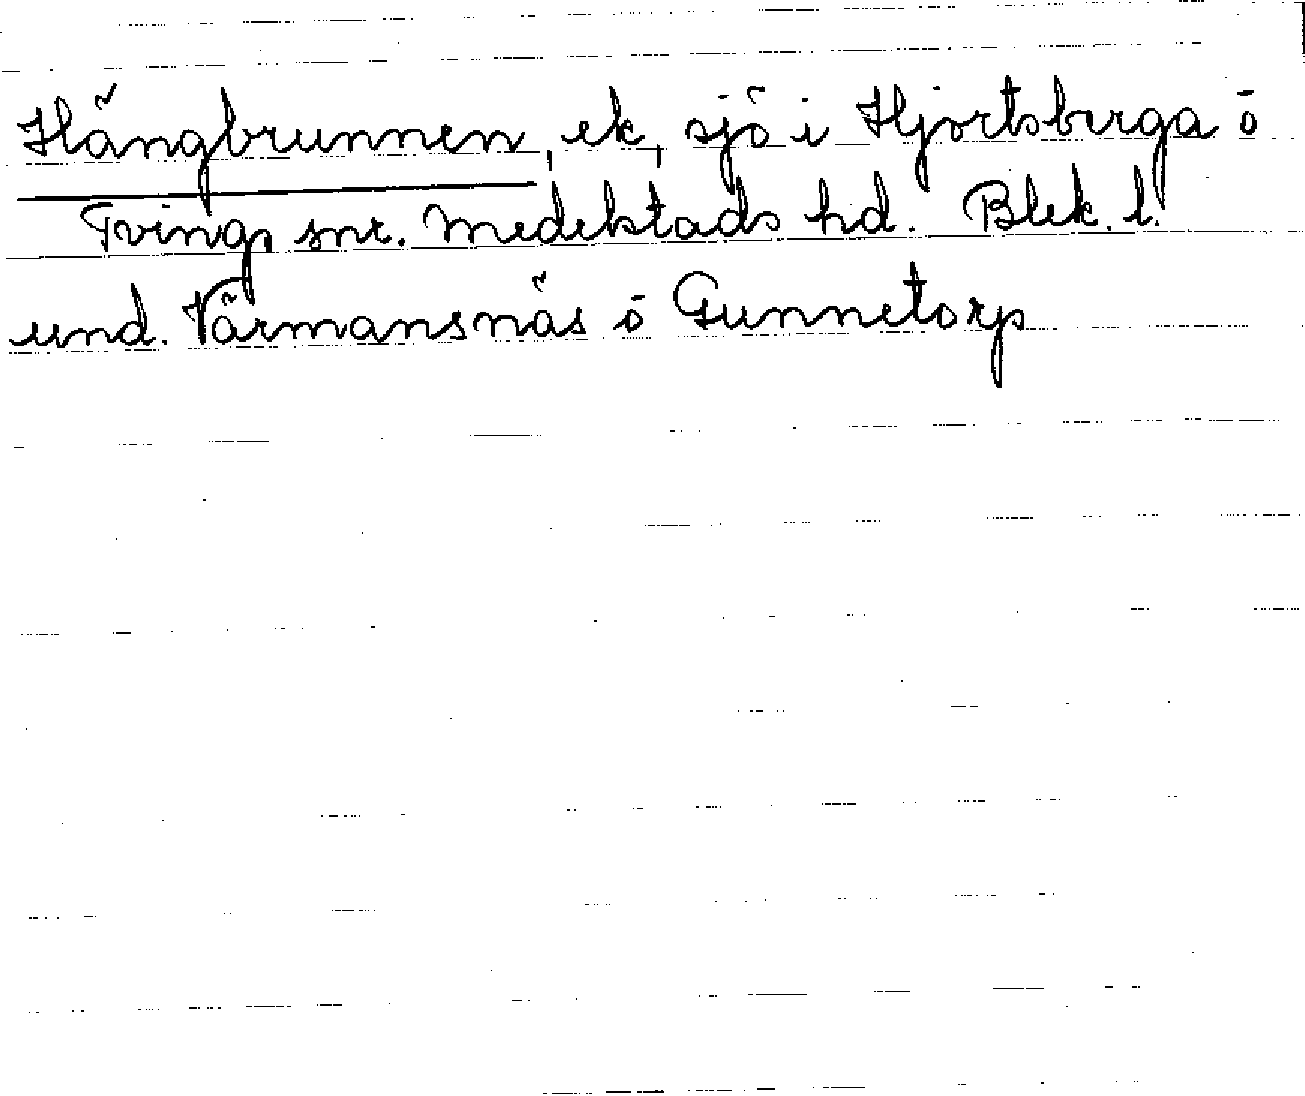 Hängbrunnen, ek, sjö i Hjortsberga ö
Tvings snr. Medelstads hd. Blek. l.
und. Värmansnäs ö Gunnetorp